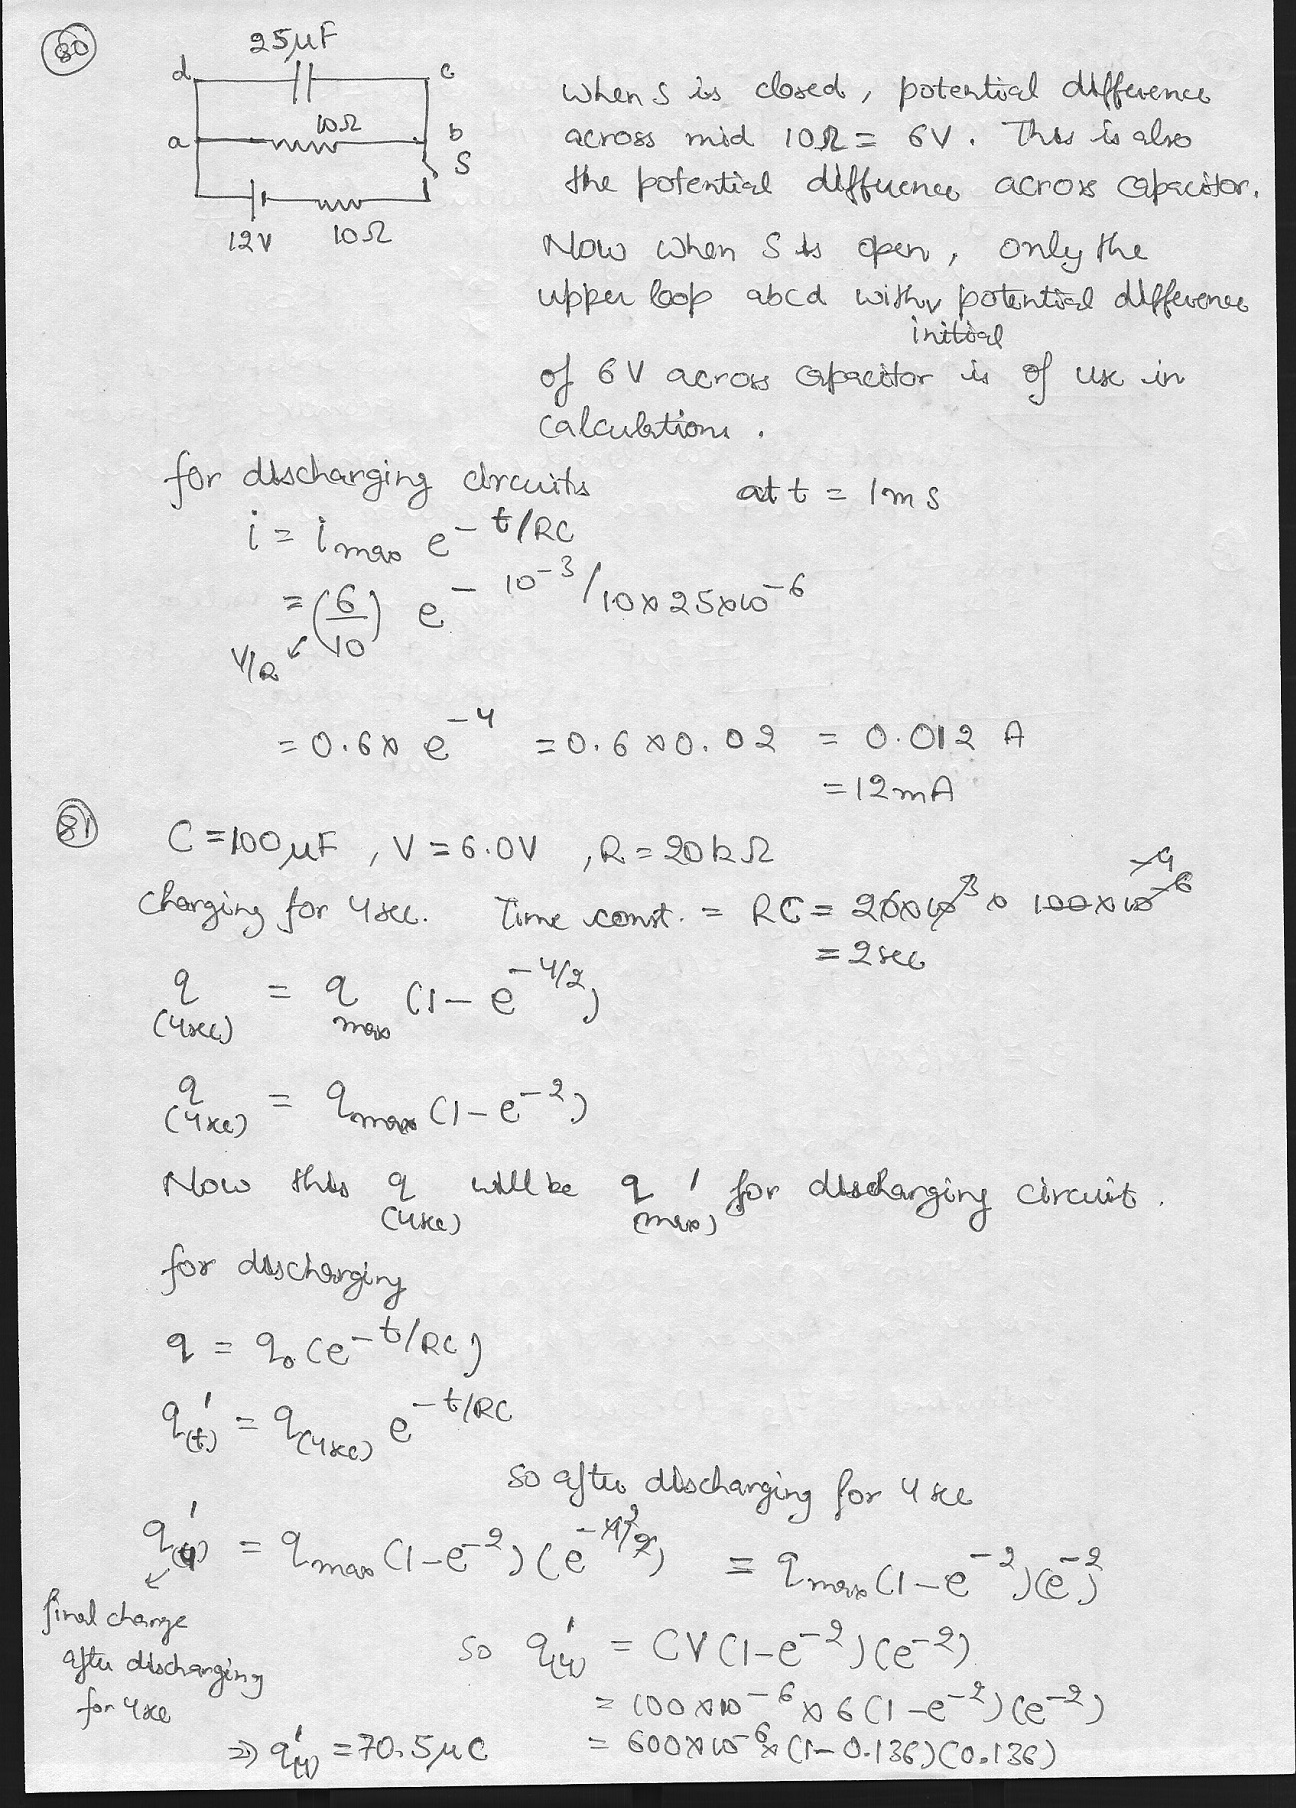 80
25μF
d c
10Ω
a b
S
12V 10Ω
When S is closed, potential difference
across mid 10Ω = 6V. This is also
the potential difference across capacitor.
Now when S is open, only the
upper loop abcd with potential difference
initial
of 6V across capacitor is of use in
calculations.
for discharging circuits at t = 1ms
i = i max e^-t/RC
= (6/10) e^-10^-3/10×25×10^-6
V/R
= 0.6 × e^-4 = 0.6 × 0.02 = 0.012 A
= 12mA
81
C = 100μF, V = 6.0V, R = 20kΩ
charging for 4sec. Time const. = RC = 20×10^3 × 100×10^-6
= 2sec
q(4sec) = q max (1-e^-4/2)
q(4sec) = q max (1-e^-2)
Now this q(4sec) will be q'(max) for discharging circuit.
for discharging
q = q0(e^-t/RC)
q'(t) = q(4sec) e^-t/RC
so after discharging for 4sec
q'(4) = q max (1-e^-2)(e^-4/2) = q max (1-e^-2)(e^-2)
final charge
after discharging
for 4sec
so q'(4) = CV(1-e^-2)(e^-2)
= 100×10^-6 × 6(1-e^-2)(e^-2)
= 600×10^-6 × (1-0.136)(0.136)
⇒ q'(4) = 70.5μC